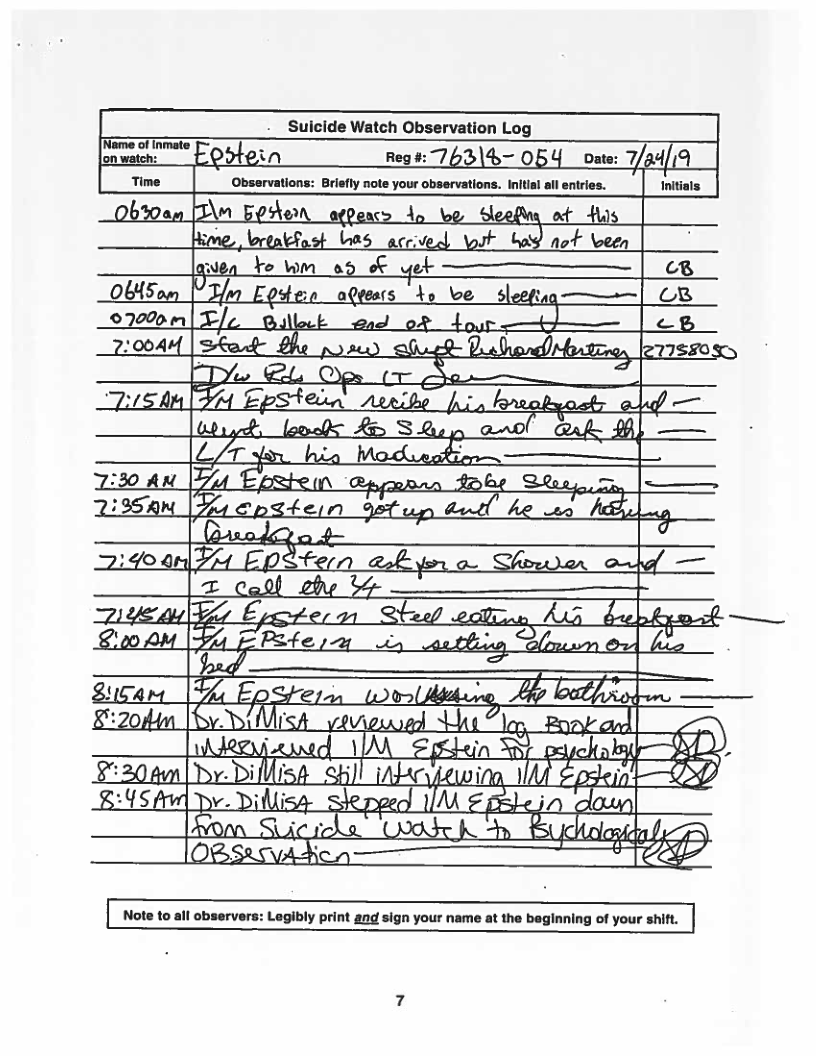 Suicide Watch Observation Log
Name of Inmate on watch: Epstein Reg #: 76318-054 Date: 7/24/19
Time Observations: Briefly note your observations. Initial all entries. Initials
0630am I\M Epstein appears to be sleeping at this
time, breakfast has arrived but has not been
given to him as of yet CB
0645am I/M Epstein appears to be sleeping CB
0700am I/C Bullock end of tour CB
7:00AM start the New shift Richard Martinez 27758050
D/w Ops LT
7:15 AM I/M Epstein recibe his breakfast and
went back to Sleep and ask the
L/T for his Madication
7:30 AM I/M Epstein appears to be Sleeping
7:35AM I/M Epstein got up and he is having
breakfast
7:40 AM I/M Epstein ask for a Shower and
I call the L/T
7:45 AM I/M Epstein Steel eating his breakfast
8:00 AM I/M EPstein is setting down on his
bed
8:15AM I/M Epstein was using the bathroom
8:20AM Dr. DiMisA reviewed the log Book and
interviewed I/M Epstein for psychology
8:30AM Dr. DiMisA still interviewing I/M Epstein
8:45AM Dr. DiMisA stepped I/M Epstein down
from Suicide Watch to Psychological
OBServAtion
Note to all observers: Legibly print and sign your name at the beginning of your shift.
7